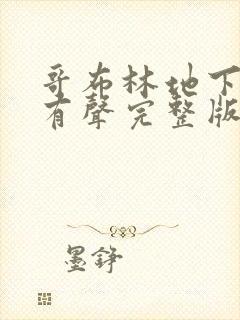 哥布林地下
有聲完整版
墨錚